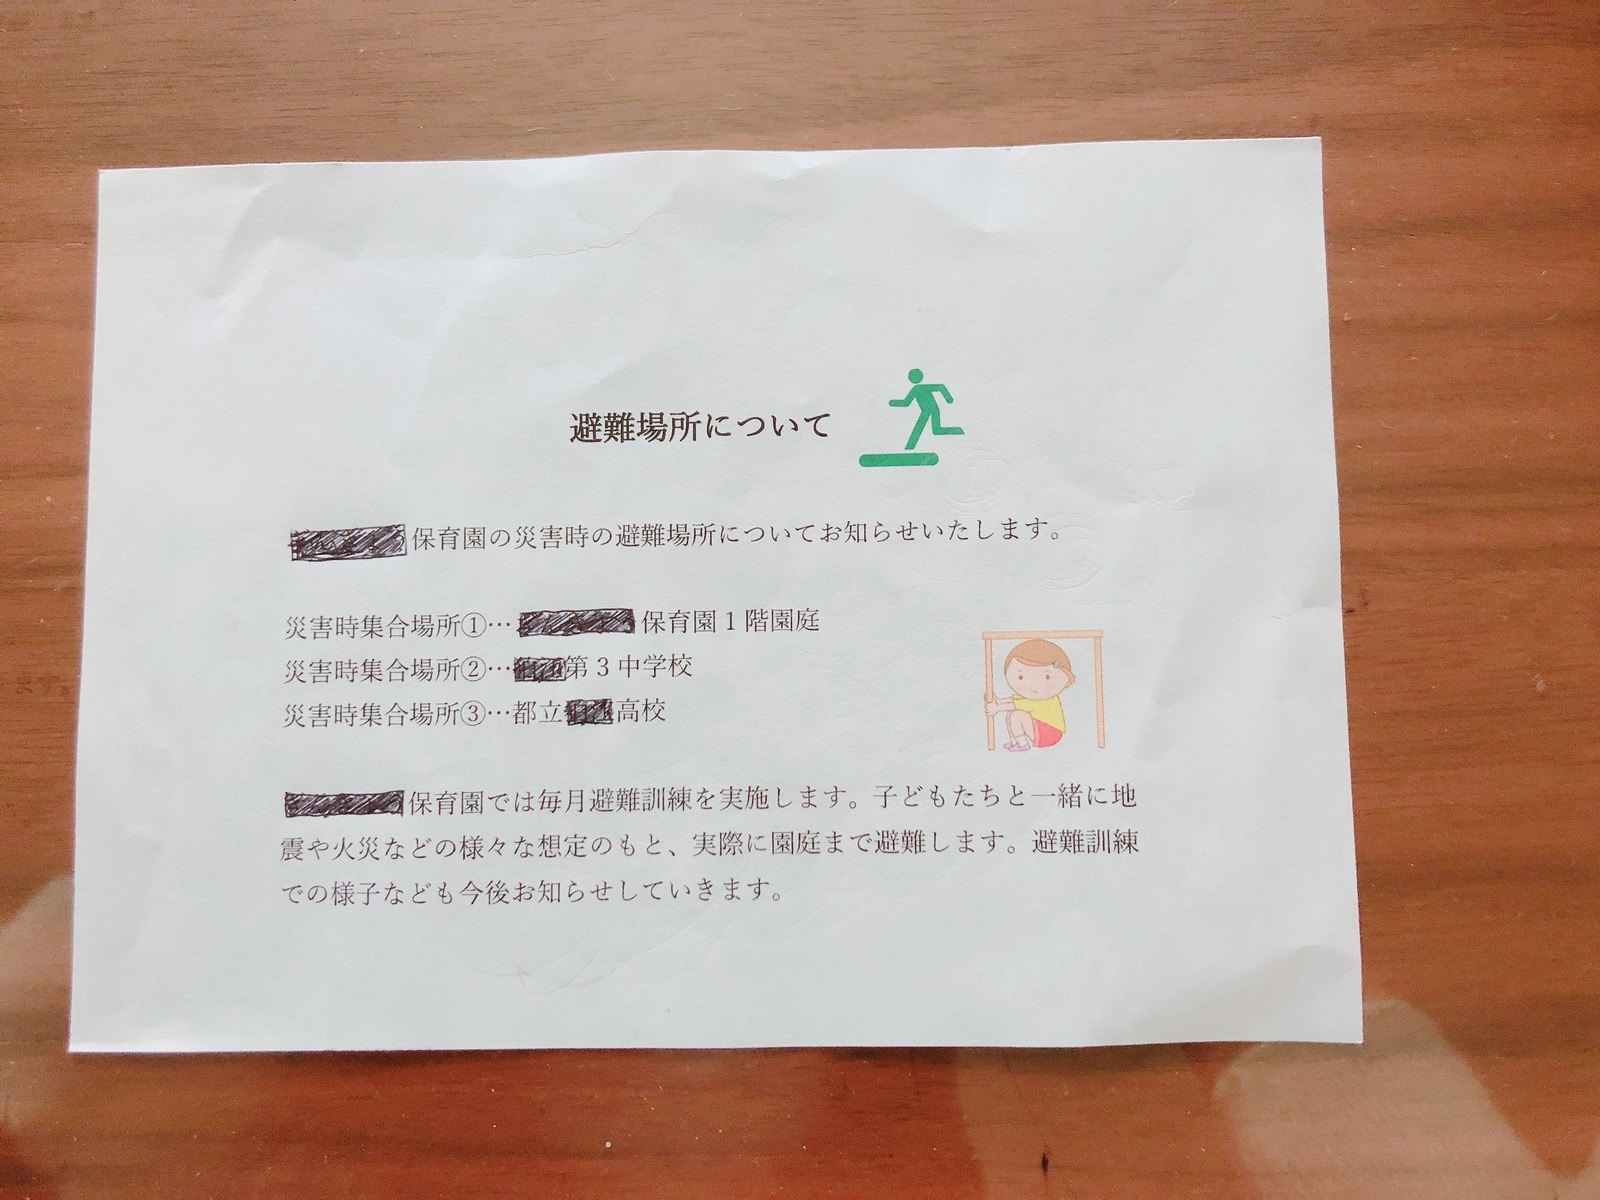 避難場所について
保育園の災害時の避難場所についてお知らせいたします。
災害時集合場所①…保育園1階園庭
災害時集合場所②…第3中学校
災害時集合場所③…都立高校
保育園では毎月避難訓練を実施します。子どもたちと一緒に地
震や火災などの様々な想定のもと、実際に園庭まで避難します。避難訓練
での様子なども今後お知らせしていきます。